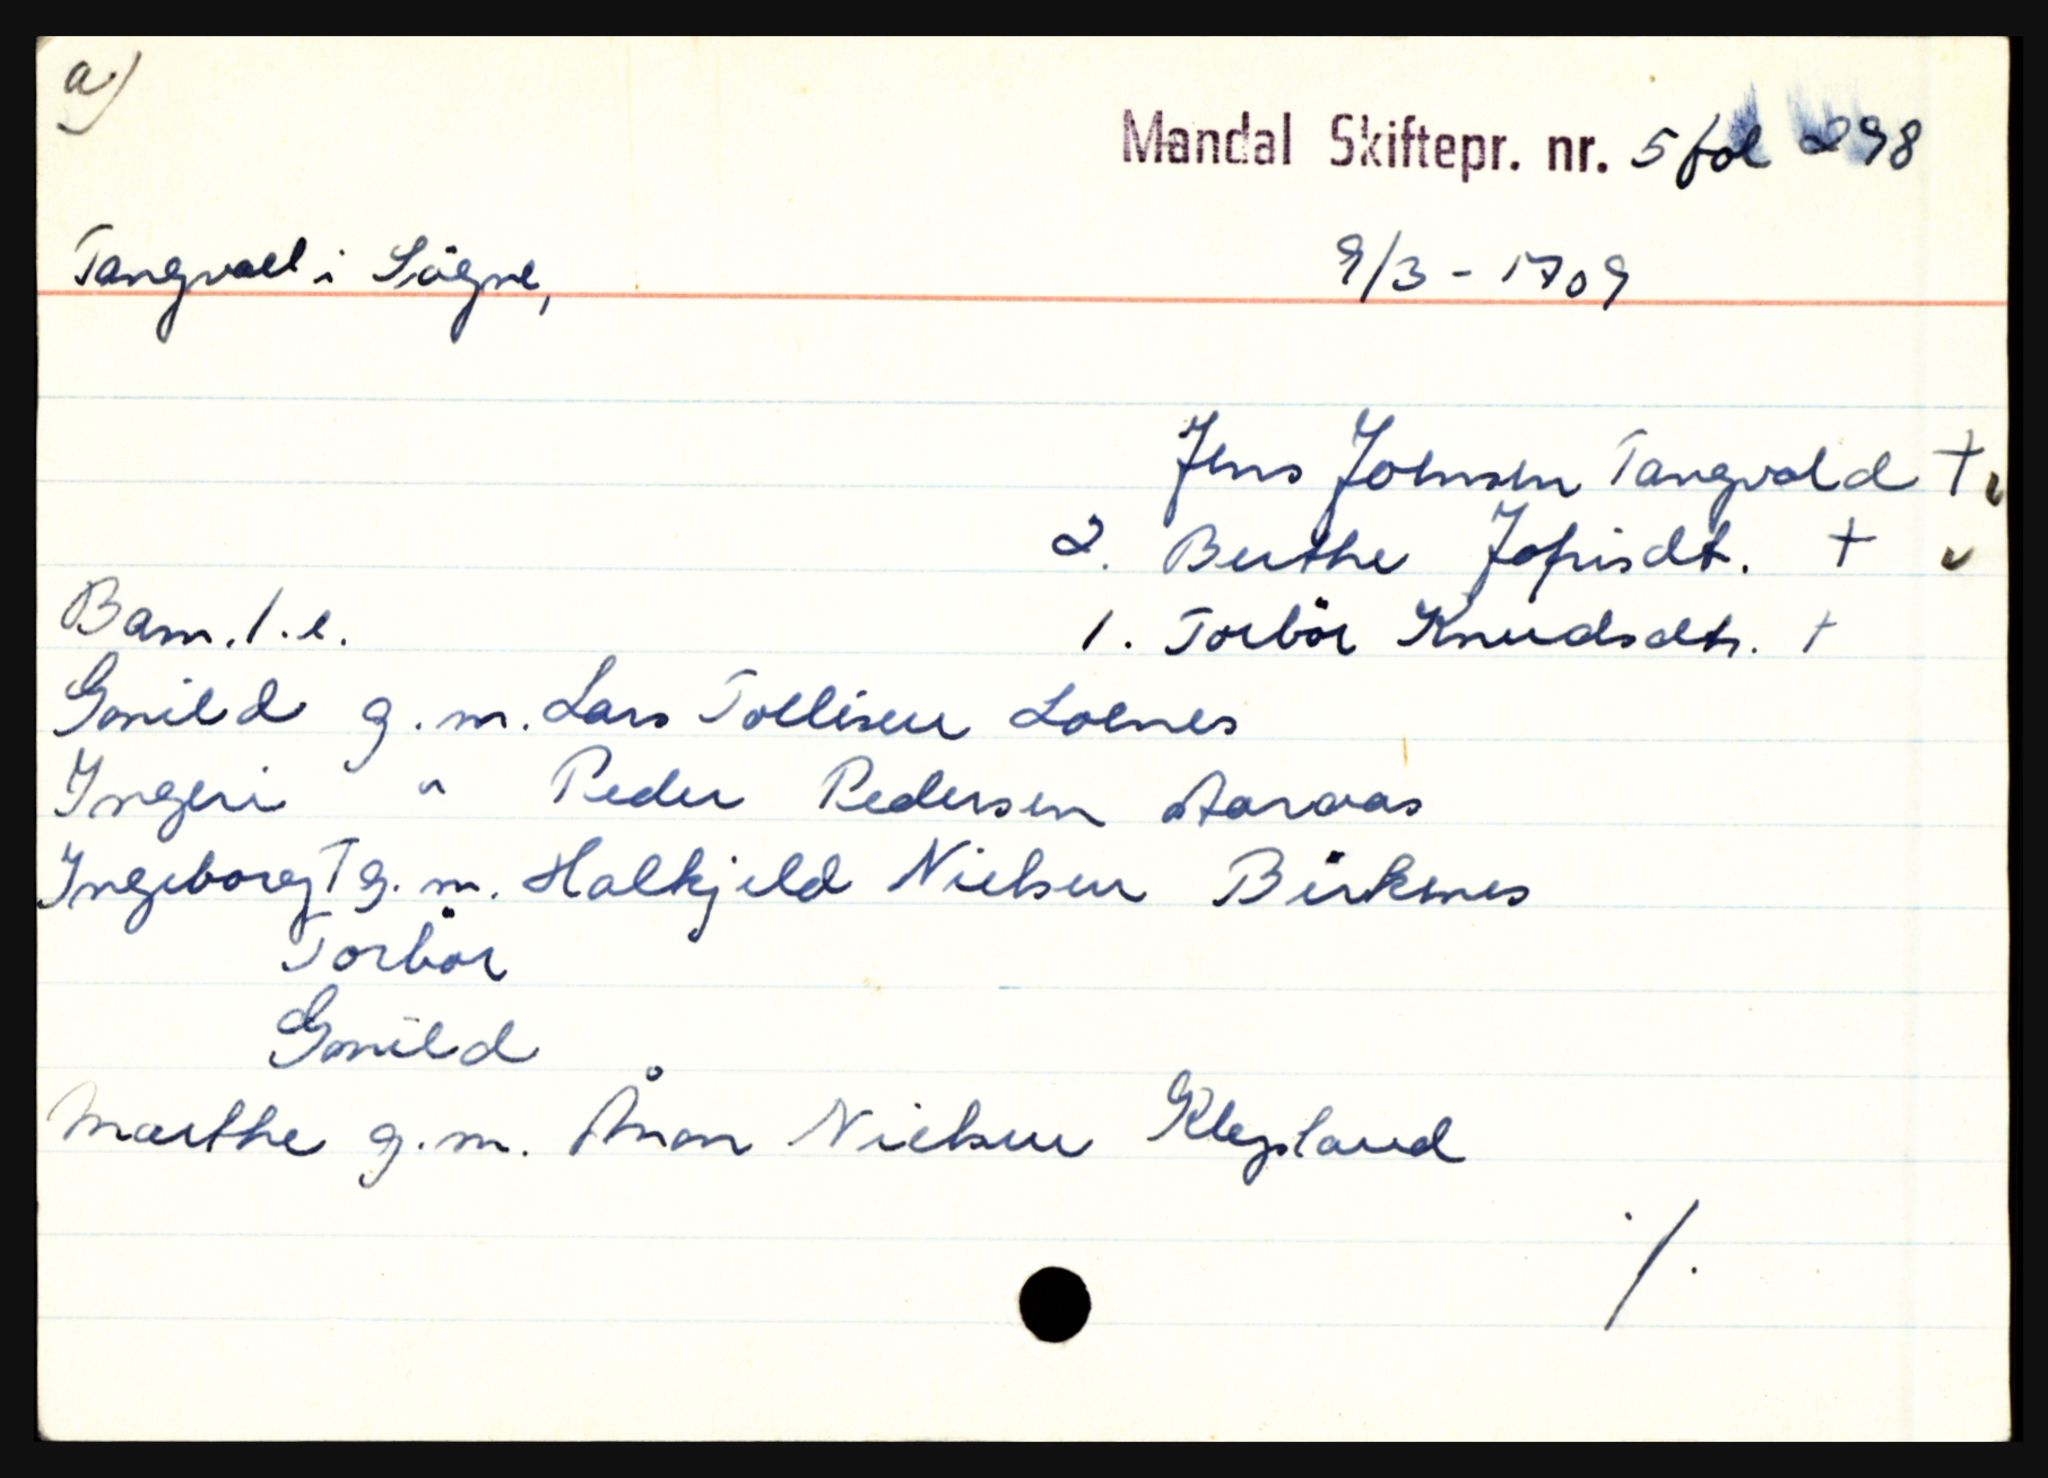 a)
Mandal Skiftepr. nr. 5 fol 298
Tangvall i Sögne, 9/3 - 1709
Jens Johnsen Tangvald † v
2. Berthe Jofrisdt. † v
Barn. 1. e. 1. Torbör Knudsdtr. †
Gunild g. m. Lars Tollisen Lohnes
Ingeri " Peder Pedersen Aaraas
Ingeborg † g. m. Halkjeld Nielsen Birkenes
Torbör
Gunild
Marthe g. m. Ånon Nielsen Klepland
./.